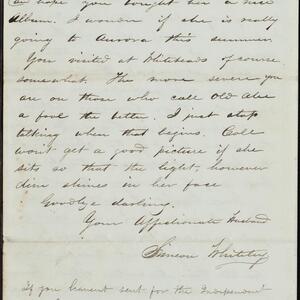 hope you bought her a nice
Album. I wonder if she is really
going to Aurora this summer.
You visited at Whiteheads of course
somewhat. The more severe you
are on those who call Old Abe
a fool the better. I just stop
talking when that begins.
wont get a good picture if she
sits so that the light, however
dim shines in her face
Goodbye darling.
Your Affectionate Husband
Simeon Whiteley
If you havent sent for the Independent